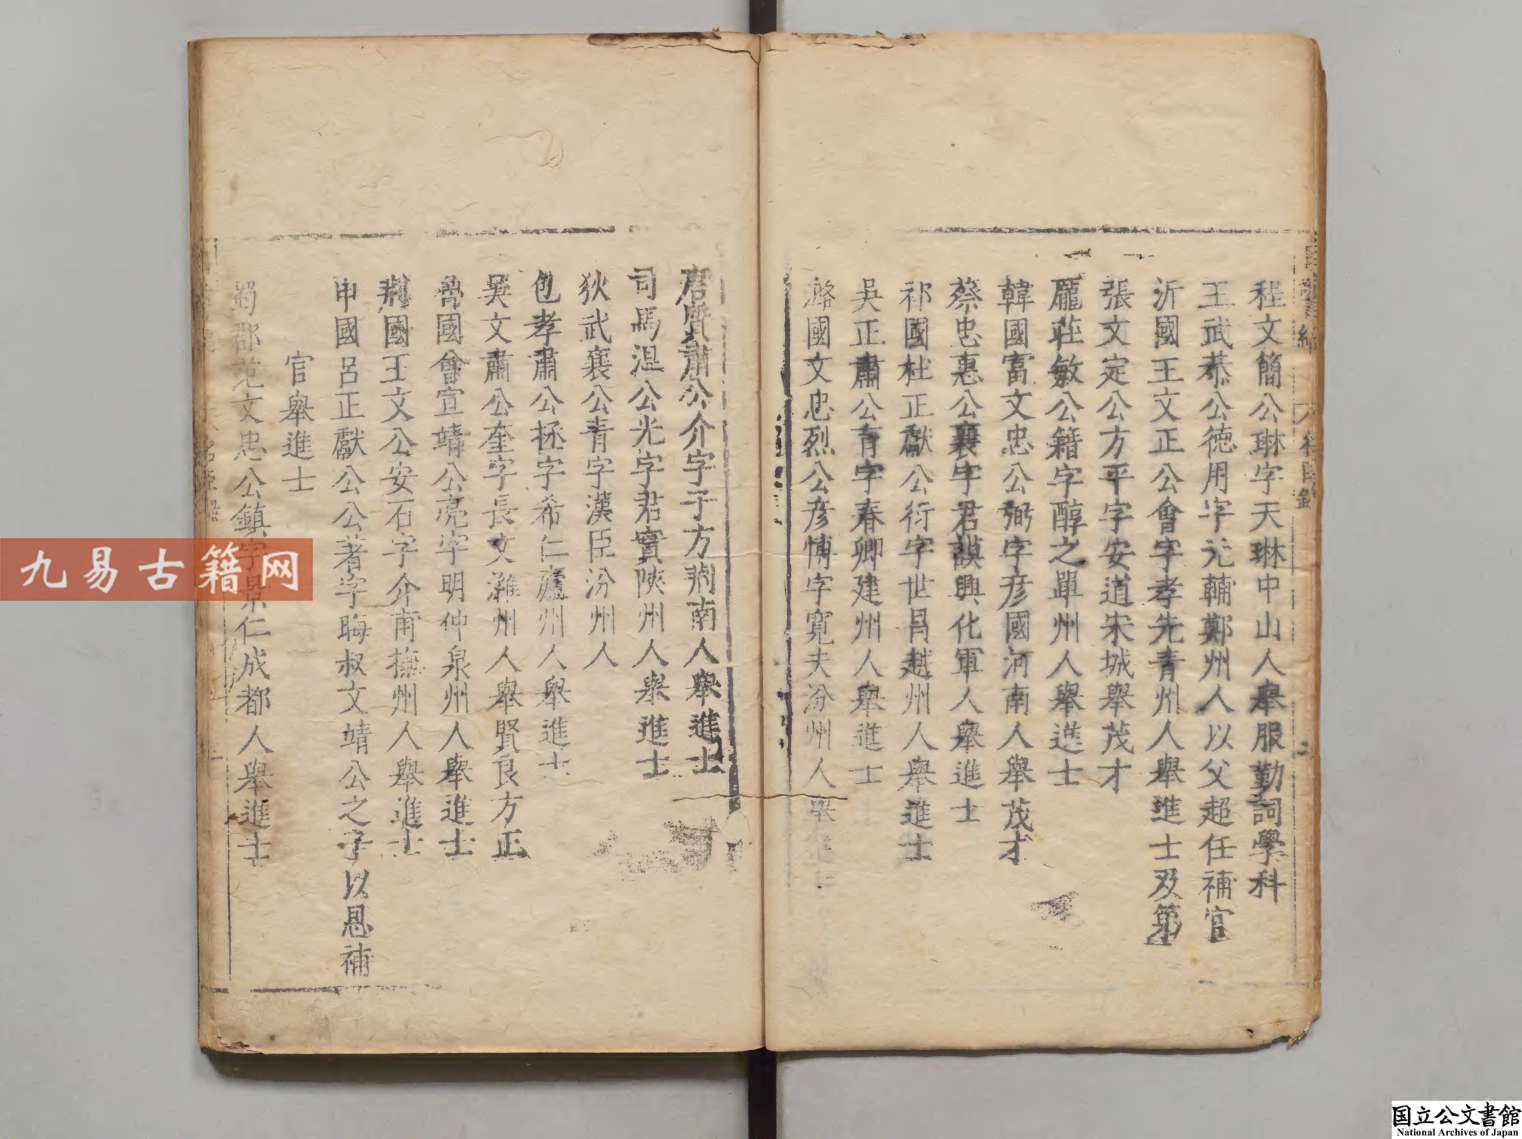 程文簡公琳字天琳中山人舉服勤詞學科
王武恭公德用字元輔鄭州人以父超任補官
沂國王文正公會字孝先青州人舉進士及第
張文定公方平字安道宋城舉茂才
龐莊敏公籍字醇之單州人舉進士
韓國富文忠公弼字彦國河南人舉茂才
蔡忠惠公襄字君謨興化軍人舉進士
祁國杜正獻公衍字世昌越州人舉進士
吳正肅公育字春卿建州人舉進士
潞國文忠烈公彦愽字寛夫汾州人舉進士
唐質肅公介字子方荆南人舉進士
司馬温公光字君實陝州人舉進士
狄武襄公青字漢臣汾州人
包孝肅公拯字希仁廬州人舉進士
吳文肅公奎字長文濰州人舉賢良方正
魯國會宣靖公亮字明仲泉州人舉進士
荆國王文公安石字介甫撫州人舉進士
申國呂正獻公公著字晦叔文靖公之子以恩補
官舉進士
蜀郡范文忠公鎮字景仁成都人舉進士
九易古籍网
国立公文書館
National Archives of Japan